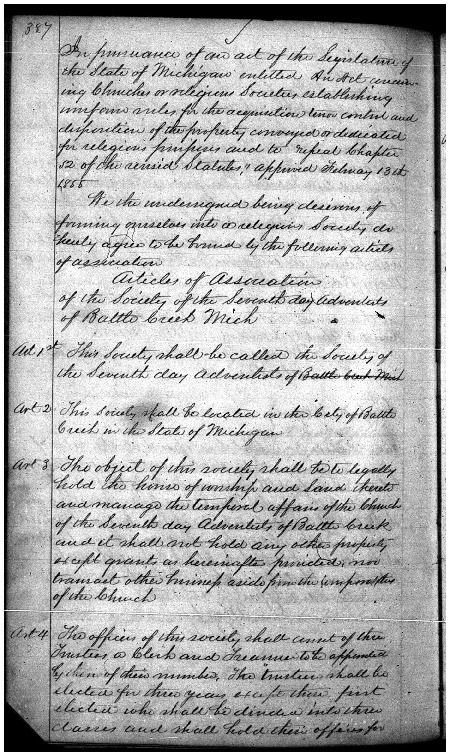 387
In pursuance of an act of the Legislature of
the State of Michigan entitled An Act concern-
ing Churches or religious Societies establishing
uniform rules for the acquisition tenor control and
disposition of the property conveyed or dedicated
for religious purposes and to "repeal Chapter
52 of the revised Statutes," approved Febuary 13th
1855
We the undersigned being desirous of
forming ourselves into a religious Society do
hereby agree to be bound by the following articles
of association
Articles of Association
of the Society of the Seventh day Adventists
of Battle Creek Mich
Art 1st This Society shall be called the Society of
the Seventh day Adventists of Battle Creek Mich
Art 2 This Society shall be located in the City of Battle
Creek in the State of Michigan
Art 3 The object of this society shall be to legally
hold the house of worship and Land thereto
and manage the temporal affairs of the Church
of the Seventh day Adventists of Battle Creek
and it shall not hold any other property
except grants as hereinafter provided, nor
transact other business aside from the temporalities
of the Church
Art 4 The officers of this society shall consist of three
Trustees a Clerk and Treasurer to be appointed
by them of their number, The trustees shall be
elected for three years except those first
elected who shall be divided into three
classes and shall hold their offices for